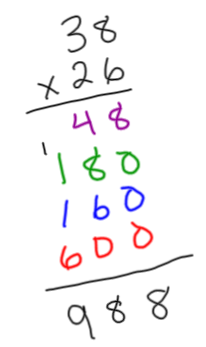 38
× 26
48
1
180
160
600
988